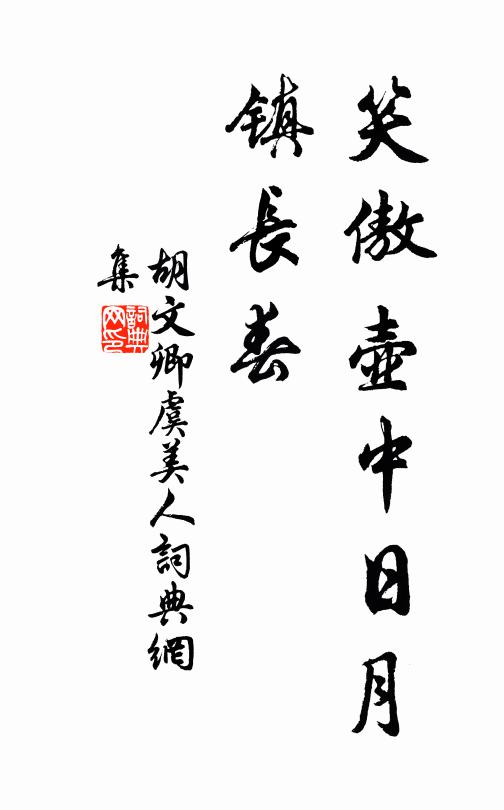 笑傲壺中日月
鎮長春
胡文卿虞美人詞典網
集
詞典
网印